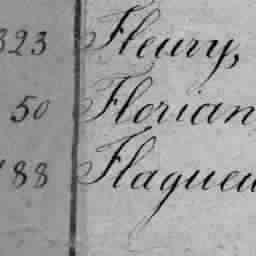 323 Fleury,
50 Florian
188 Flagueu